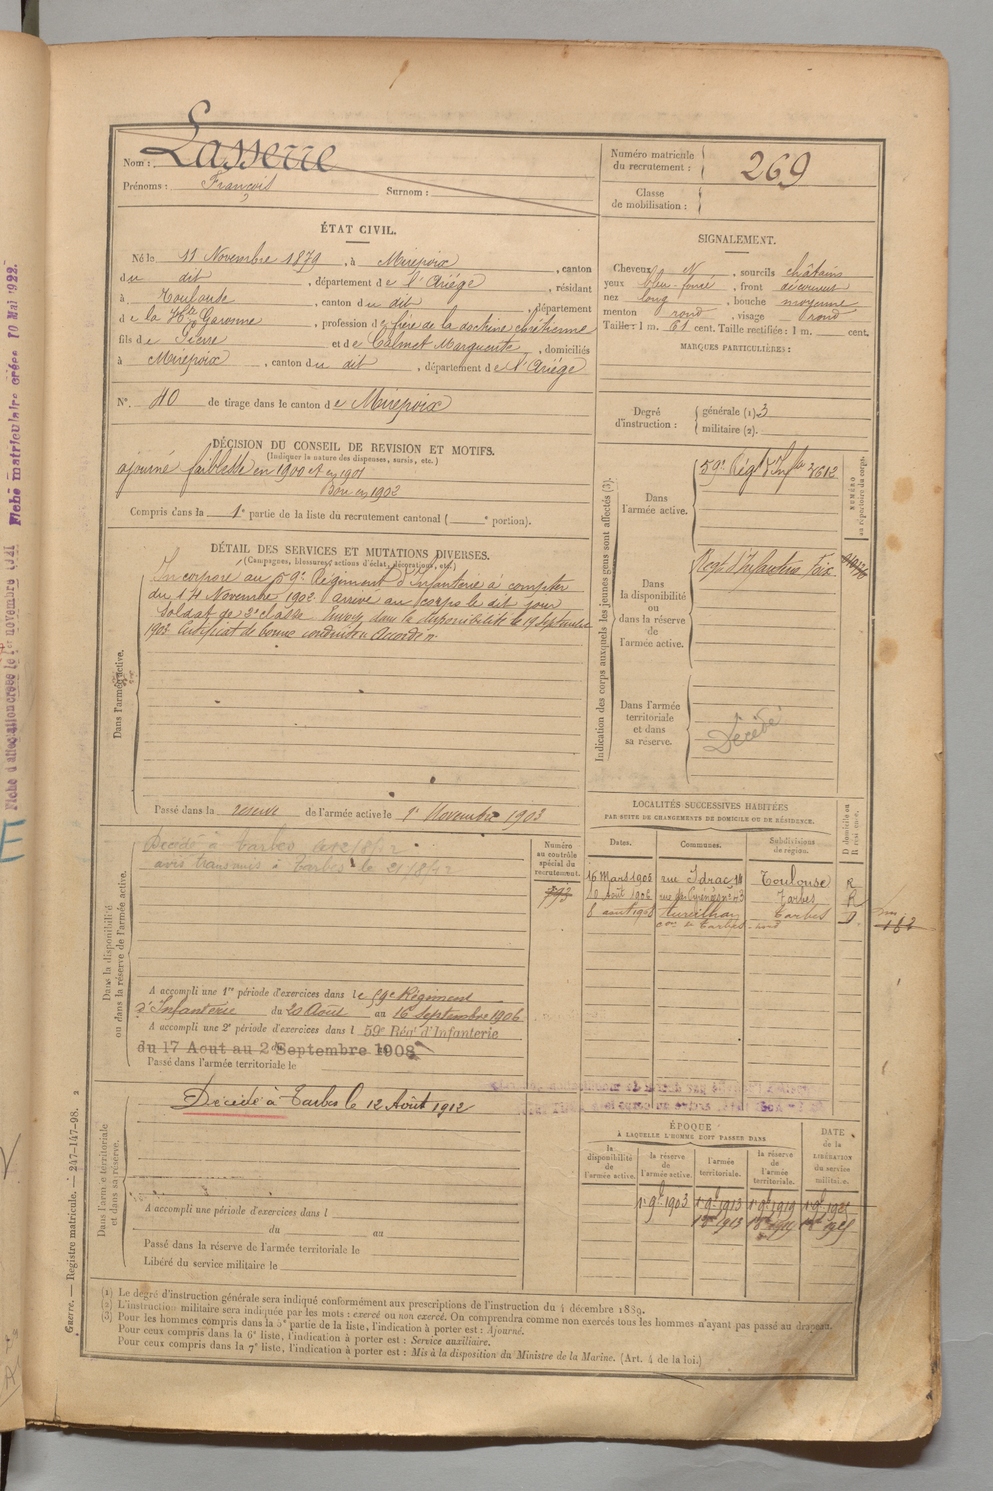 Nom : Lasserre
Prénoms : François Surnom :
Numéro matricule du recrutement : 269
Classe de mobilisation :
ÉTAT CIVIL.
Né le 11 Novembre 1879, à Mirepoix, canton
du dit, département de l'Ariége, résidant
à Toulouse, canton du dit, département
de la Hte Garonne, profession de frère de la doctrine chrétienne
fils de Pierre et de Calmet Marguerite, domiciliés
à Mirepoix, canton du dit, département de l'Ariége
N° 40 de tirage dans le canton de Mirepoix
SIGNALEMENT.
Cheveux N, sourcils châtains
yeux bleu-foncé, front découvert
nez long, bouche moyenne
menton rond, visage rond
Taille : 1 m. 61 cent. Taille rectifiée : 1 m. cent.
MARQUES PARTICULIÈRES :
Degré d'instruction : générale (1) 3
militaire (2).
DÉCISION DU CONSEIL DE REVISION ET MOTIFS.
(Indiquer la nature des dispenses, sursis, etc.)
ajourné faiblesse en 1900 et en 1901
Bon en 1902
Compris dans la 1e partie de la liste du recrutement cantonal ( e portion).
DÉTAIL DES SERVICES ET MUTATIONS DIVERSES.
(Campagnes, blessures, actions d'éclat, décorations, etc.)
Dans l'armée active.
Incorporé au 59e Régiment d'Infanterie à compter
du 14 Novembre 1902 arrivé au corps le dit jour
Soldat de 2e classe. Envoyé dans la disponibilité le 19 Septembre
1903. Certificat de bonne conduite Accordé
Passé dans la réserve de l'armée active le 1er Novembre 1903
Indication des corps auxquels les jeunes gens sont affectés (3).
NUMÉRO au répertoire du corps.
Dans l'armée active.
59e Régt d'Infie 7612
Dans la disponibilité ou dans la réserve de l'armée active.
Régt d'Infanterie Foix
Dans l'armée territoriale et dans sa réserve.
Décédé
LOCALITÉS SUCCESSIVES HABITÉES
PAR SUITE DE CHANGEMENTS DE DOMICILE OU DE RÉSIDENCE.
Dates. Communes. Subdivisions de région. D domicile ou R résidence.
16 Mars 1905 rue Idrac 14 Toulouse R
10 août 1906 rue des Pyrénées n° 3 Tarbes R
8 août 1908 Aureilhan Tarbes D.
con de Tarbes - nord
Dans la disponibilité ou dans la réserve de l'armée active.
Numéro au contrôle spécial du recrutement.
793
Décédé à Tarbes le 12/8/12
avis transmis à Tarbes le 21/8/12
A accompli une 1re période d'exercices dans le 59e Régiment
d'Infanterie du 20 Août au 16 Septembre 1906
A accompli une 2e période d'exercices dans l 59e Rég. d'Infanterie
du 17 Aout au 2 Septembre 1908
Passé dans l'armée territoriale le
Dans l'armée territoriale et dans sa réserve.
Décédé à Tarbes le 12 Août 1912
A accompli une période d'exercices dans l
du au
Passé dans la réserve de l'armée territoriale le
Libéré du service militaire le
ÉPOQUE
A LAQUELLE L'HOMME DOIT PASSER DANS
DATE de la LIBÉRATION du service militaire.
la disponibilité de l'armée active. la réserve de l'armée active. l'armée territoriale. la réserve de l'armée territoriale.
1er 9bre 1903 1er 9bre 1913 1er 9bre 1919
(1) Le degré d'instruction générale sera indiqué conformément aux prescriptions de l'instruction du 4 décembre 1889.
(2) L'instruction militaire sera indiquée par les mots : exercé ou non exercé. On comprendra comme non exercés tous les hommes n'ayant pas passé au drapeau.
(3) Pour les hommes compris dans la 5e partie de la liste, l'indication à porter est : Ajourné.
Pour ceux compris dans la 6e liste, l'indication à porter est : Service auxiliaire.
Pour ceux compris dans la 7e liste, l'indication à porter est : Mis à la disposition du Ministre de la Marine. (Art. 4 de la loi.)
Guerre. — Registre matricule. — 247-147-98.
Fiche matriculaire créée 10 Mai 1922.